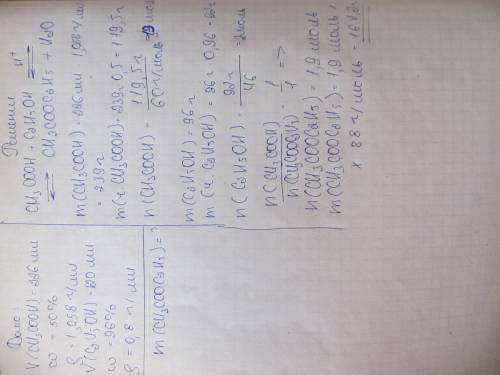 Дано:
V(CH₃COOH) = 226 мл
ω = 50%
ρ = 1,058 г/мл
V(C₂H₅OH) = 120 мл
ω = 96%
ρ = 0,8 г/мл
m(CH₃COOC₂H₅) = ?
Решение
CH₃COOH + C₂H₅OH ⇌ H⁺
⇌ CH₃COOC₂H₅ + H₂O
m(CH₃COOH) = 226 мл · 1,058 г/мл
= 239г
m(ч. CH₃COOH) = 239г · 0,5 = 119,5г
n(CH₃COOH) = 119,5г / 60 г/моль =
m(C₂H₅OH) = 96г
m(ч. C₂H₅OH) = 96г · 0,96 = 92г
n(C₂H₅OH) = 92г / 46 = 2моль
n(CH₃COOH) / n(CH₃COOC₂H₅) = 1 / 1 =>
n(CH₃COOC₂H₅) = 1,9 моль
m(CH₃COOC₂H₅) = 1,9 моль ·
× 88 г/моль = 167,2г